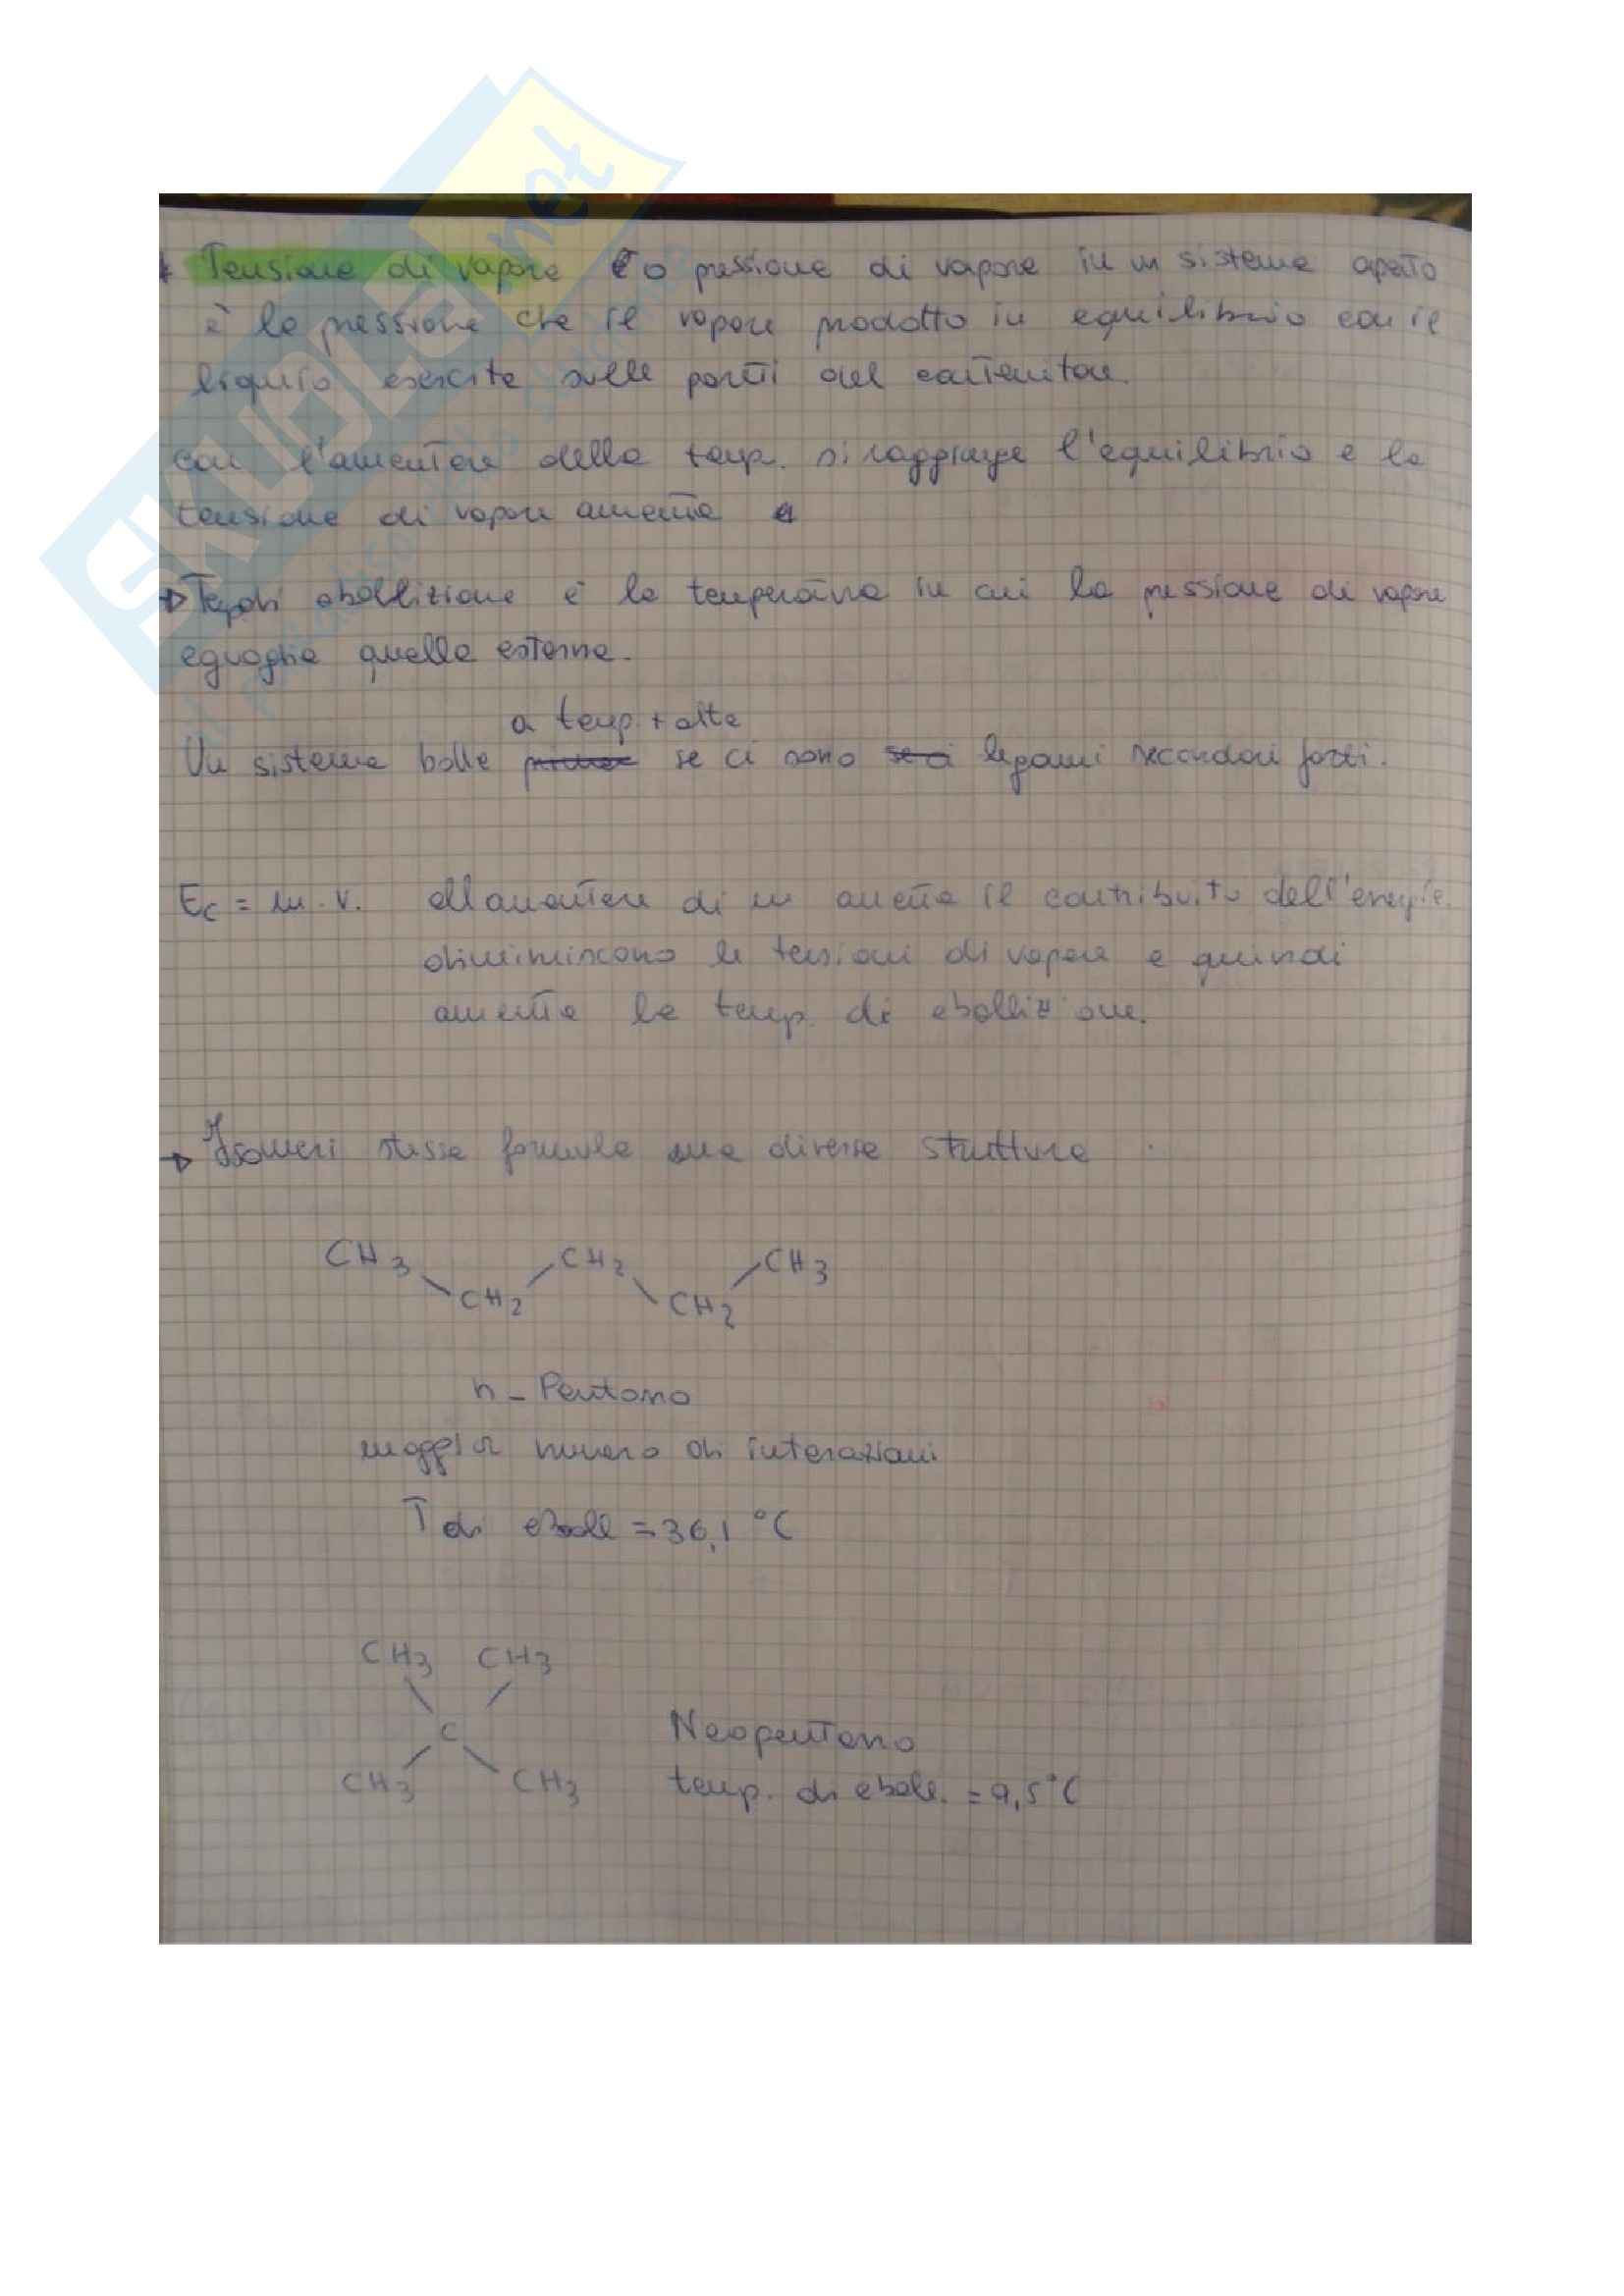 Tensione di vapore o pressione di vapore in un sistema aperto
è la pressione che il vapore prodotto in equilibrio con il
liquido esercita sulle pareti del contenitore.
con l'aumentare della temp. si raggiunge l'equilibrio e la
tensione di vapore aumenta e
→ Temp di ebollizione è la temperatura in cui la pressione di vapore
eguaglia quella esterna.
a temp. + alte
Un sistema bolle se ci sono se ci legami secondari forti.
Ec = m · v. all'aumentare di m aumenta il contributo dell'energia.
diminuiscono le tensioni di vapore e quindi
aumenta la temp. di ebollizione.
→ Isomeri stessa formula ma diversa struttura
CH3 CH2 CH2 CH2 CH3
n - Pentano
maggior numero di interazioni
T di eboll = 36,1 °C
CH3 CH3
C
CH3 CH3
Neopentano
temp. di eboll. = 9,5°C
SKUOLA.net